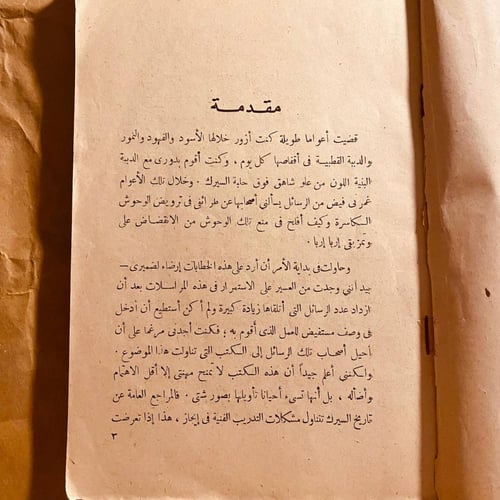 مقدمة
قضيت أعواما طويلة كنت أزور خلالها الأسود والفهود والنمور
والدببة القطبية فى أقفاصها كل يوم ، وكنت أقوم بدورى مع الدببة
البنية اللون من علو شاهق فوق حلبة السيرك . وخلال تلك الأعوام
غمرنى فيض من الرسائل يسألنى أصحابها عن طرائقى فى ترويض الوحوش
الكاسرة وكيف أفلح فى منع تلك الوحوش من الانقضاض على
وتمزيقى إربا إربا .
وحاولت فى بداية الأمر أن أرد على هذه الخطابات إرضاء لضميرى –
بيد أننى وجدت من العسير على الاستمرار فى هذه المراسلات بعد أن
ازداد عدد الرسائل التى أتلقاها زيادة كبيرة ولم أكن أستطيع أن أدخل
فى وصف مستفيض للعمل الذى أقوم به ؛ فكنت أجدنى مرغما على أن
أحيل أصحاب تلك الرسائل إلى الكتب التى تناولت هذا الموضوع .
ولكننى أعلم جيداً أن هذه الكتب لا تمنح مهنتى إلا أقل الاهتمام
وأضأله ، بل أنها تسىء أحيانا تأويلها بصور شتى . فالمراجع العامة عن
تاريخ السيرك تتناول مشكلات التدريب الفنية فى إيجاز ، هذا إذا تعرضت
٣